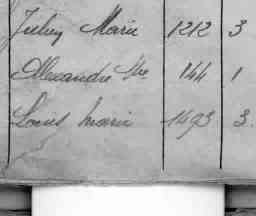 Julien Marie 1212 3
Alexandre Mie 144 1
Louis Marie 1493 3.